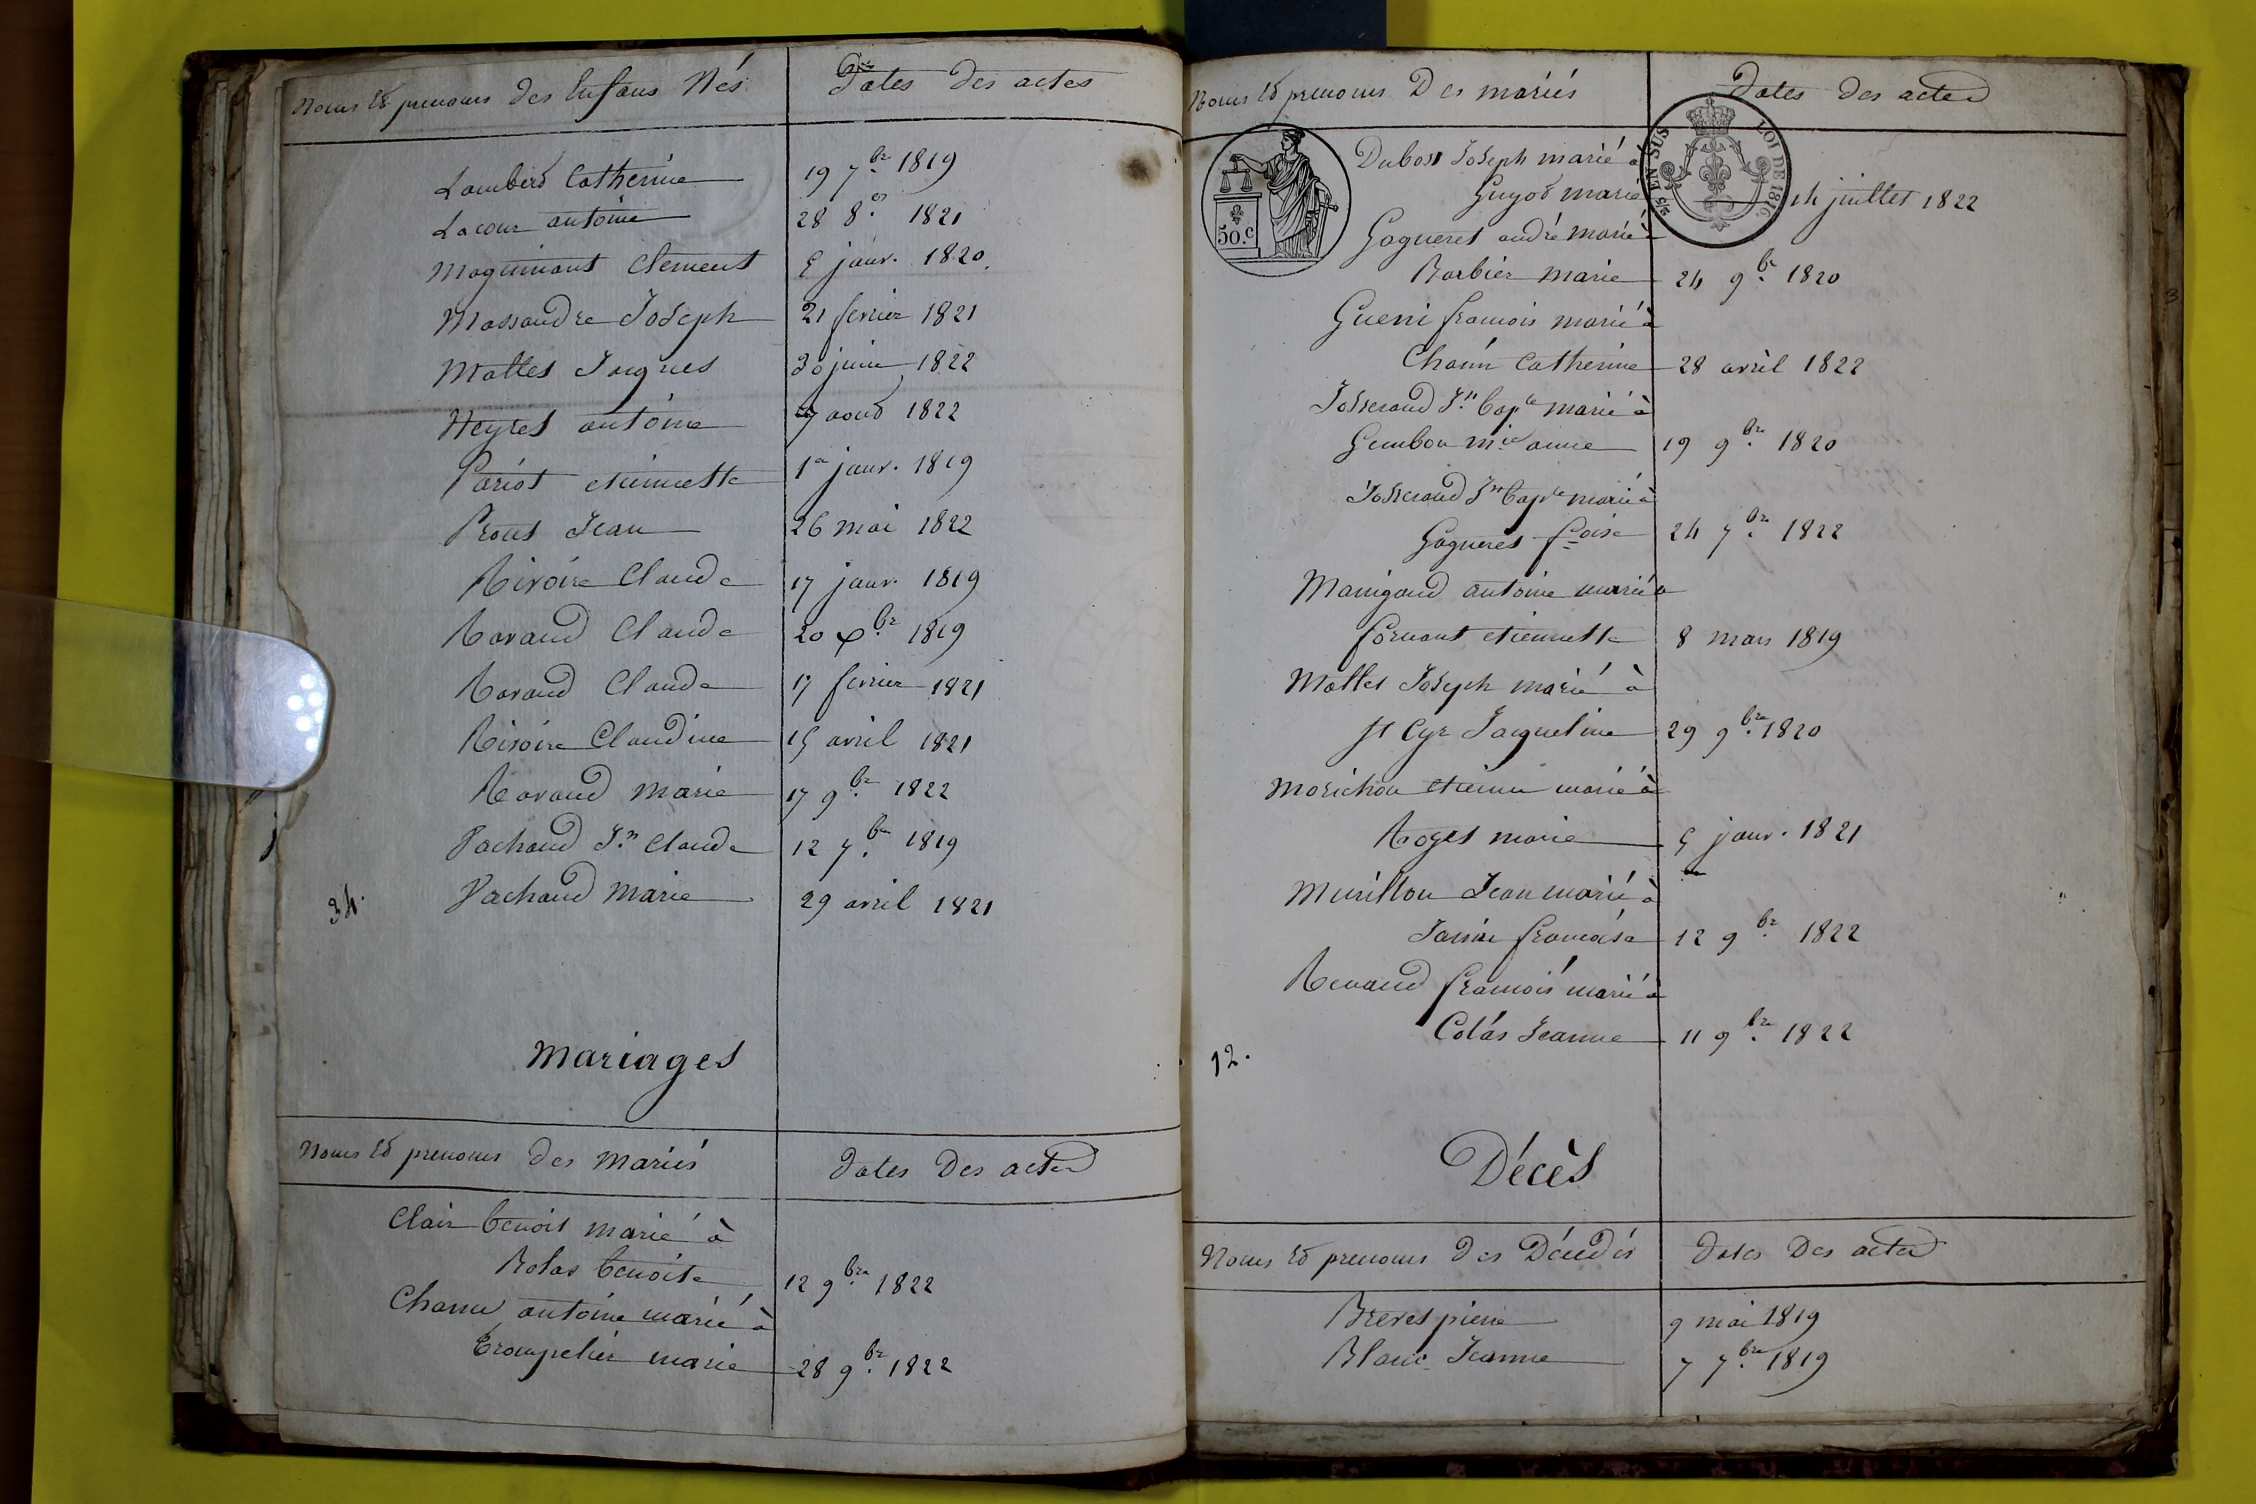 Noms et prenoms des Enfans Nés Dates des actes
Lambert Catherine 19 7.bre 1819
Lacour antoine 28 8.e 1821
Maguinant Clement 5 janv. 1820
Massandre Joseph 21 fevrier 1821
Mattet Jaques 30 juin 1822
Neyret antoine 7 aout 1822
Pariot etiennette 1er janv. 1819
Prout Jean 26 mai 1822
Rivoire Claude 17 janv. 1819
Ravaud Claude 20 Xbre 1819
Ravaud Claude 17 fevrier 1821
Rivoire Claudine 15 avril 1821
Ravaud Marie 17 9.bre 1822
Vachaud Jn Claude 12 7.bre 1819
Vachaud Marie 29 avril 1821
34.
Mariages
Noms et prenoms des Mariés Dates Des actes
Clair benoit marié à
Rolas benoite 12 9.bre 1822
Chanu antoine marié à
Trompelier marie 28 9.bre 1822
Noms et prenoms Des mariés Dates des actes
50.C
2/5 EN SUS LOI DE 1816
Dubost Joseph marié à
Guyot marie 14 juillet 1822
Gagneret andré marié à
Barbier marie 24 9.bre 1820
Gueni francois marié à
Chanu Catherine 28 avril 1822
Josseraud Jn Bapte marié à
Gembon mie anne 19 9.bre 1820
Josseraud Jn Bapte marié à
Gagneret foise 24 7.bre 1822
Manigaud antoine marié à
fornant etiennette 8 mars 1819
Mattet Joseph marié à
St Cyr Jaqueline 29 9.bre 1820
Morichon etienne marié à
Roget marie 5 janv. 1821
Murillon Jean marié à
Janin francoise 12 9.bre 1822
Renaud francois marié à
Colas Jeanne 11 9.bre 1822
12.
Décès
Noms et prenoms des Décedés Dates Des actes
Brevet pierre 9 mai 1819
Blanc Jeanne 7 7.bre 1819